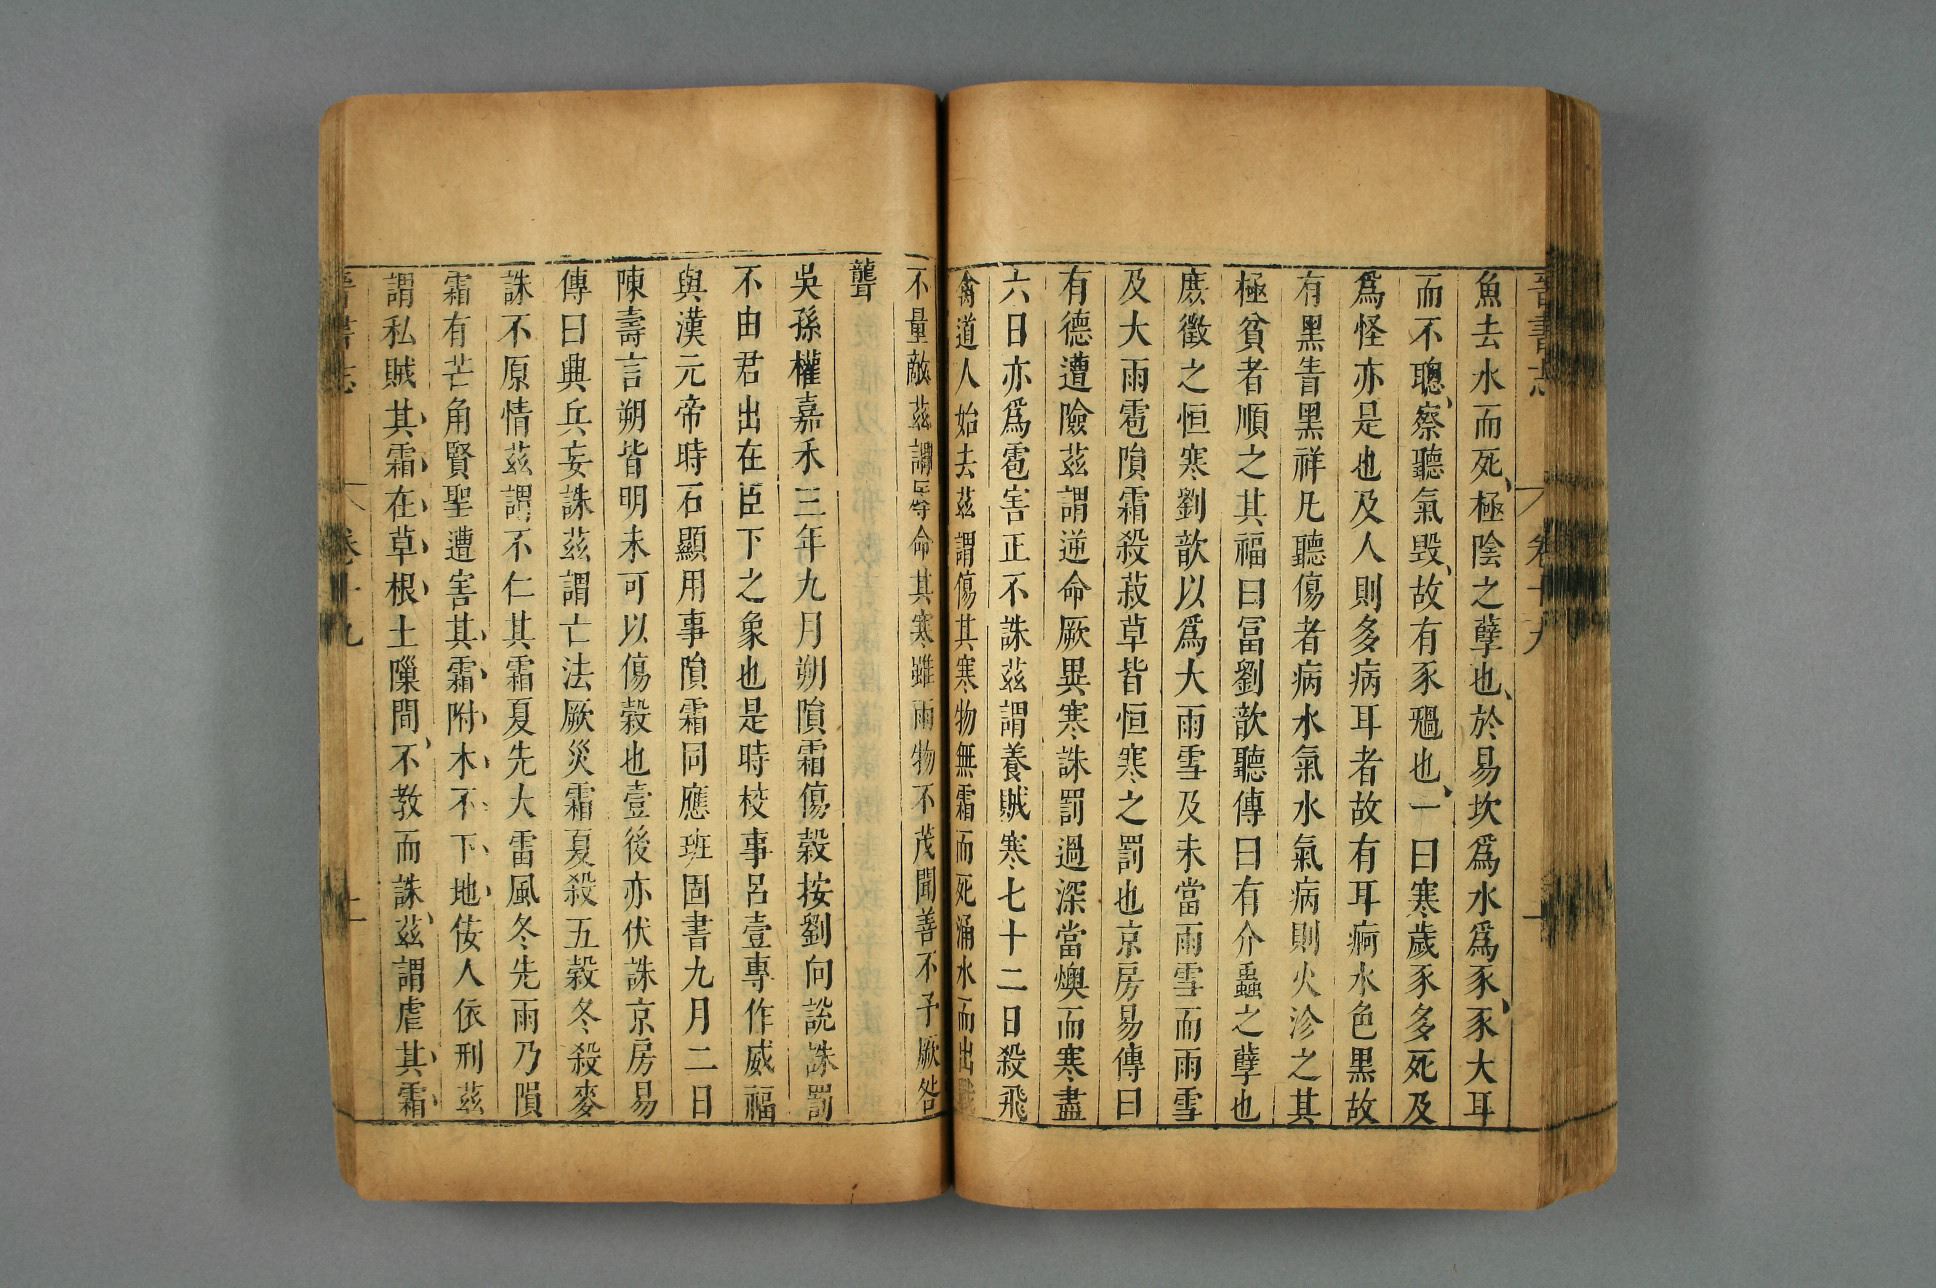 晉書志 卷十九
魚去水而死極陰之孽也於易坎爲水爲豕豕大耳
而不聰察聽氣毀故有豕禍也一曰寒歲豕多死及
爲怪亦是也及人則多病耳者故有耳痾水色黑故
有黑眚黑祥凡聽傷者病水氣水氣病則火沴之其
極貧者順之其福曰富劉歆聽傳曰有介蟲之孽也
庶徵之恒寒劉歆以爲大雨雪及未當雨雪而雨雪
及大雨雹隕霜殺菽草皆恒寒之罰也京房易傳曰
有德遭險茲謂逆命厥異寒誅罰過深當燠而寒盡
六日亦爲雹害正不誅茲謂養賊寒七十二日殺飛
禽道人始去茲謂傷其寒物無霜而死涌水而出戰
不量敵茲謂辱命其寒雖雨物不茂聞善不予厥咎
聾
吳孫權嘉禾三年九月朔隕霜傷穀按劉向說誅罰
不由君出在臣下之象也是時校事呂壹專作威福
與漢元帝時石顯用事隕霜同應班固書九月二日
陳壽言朔皆明未可以傷穀也壹後亦伏誅京房易
傳曰興兵妄誅茲謂亡法厥災霜夏殺五穀冬殺麥
誅不原情茲謂不仁其霜夏先大雷風冬先雨乃隕
霜有芒角賢聖遭害其霜附木不下地佞人依刑茲
謂私賊其霜在草根土隙間不教而誅茲謂虐其霜
晉書志 卷十九